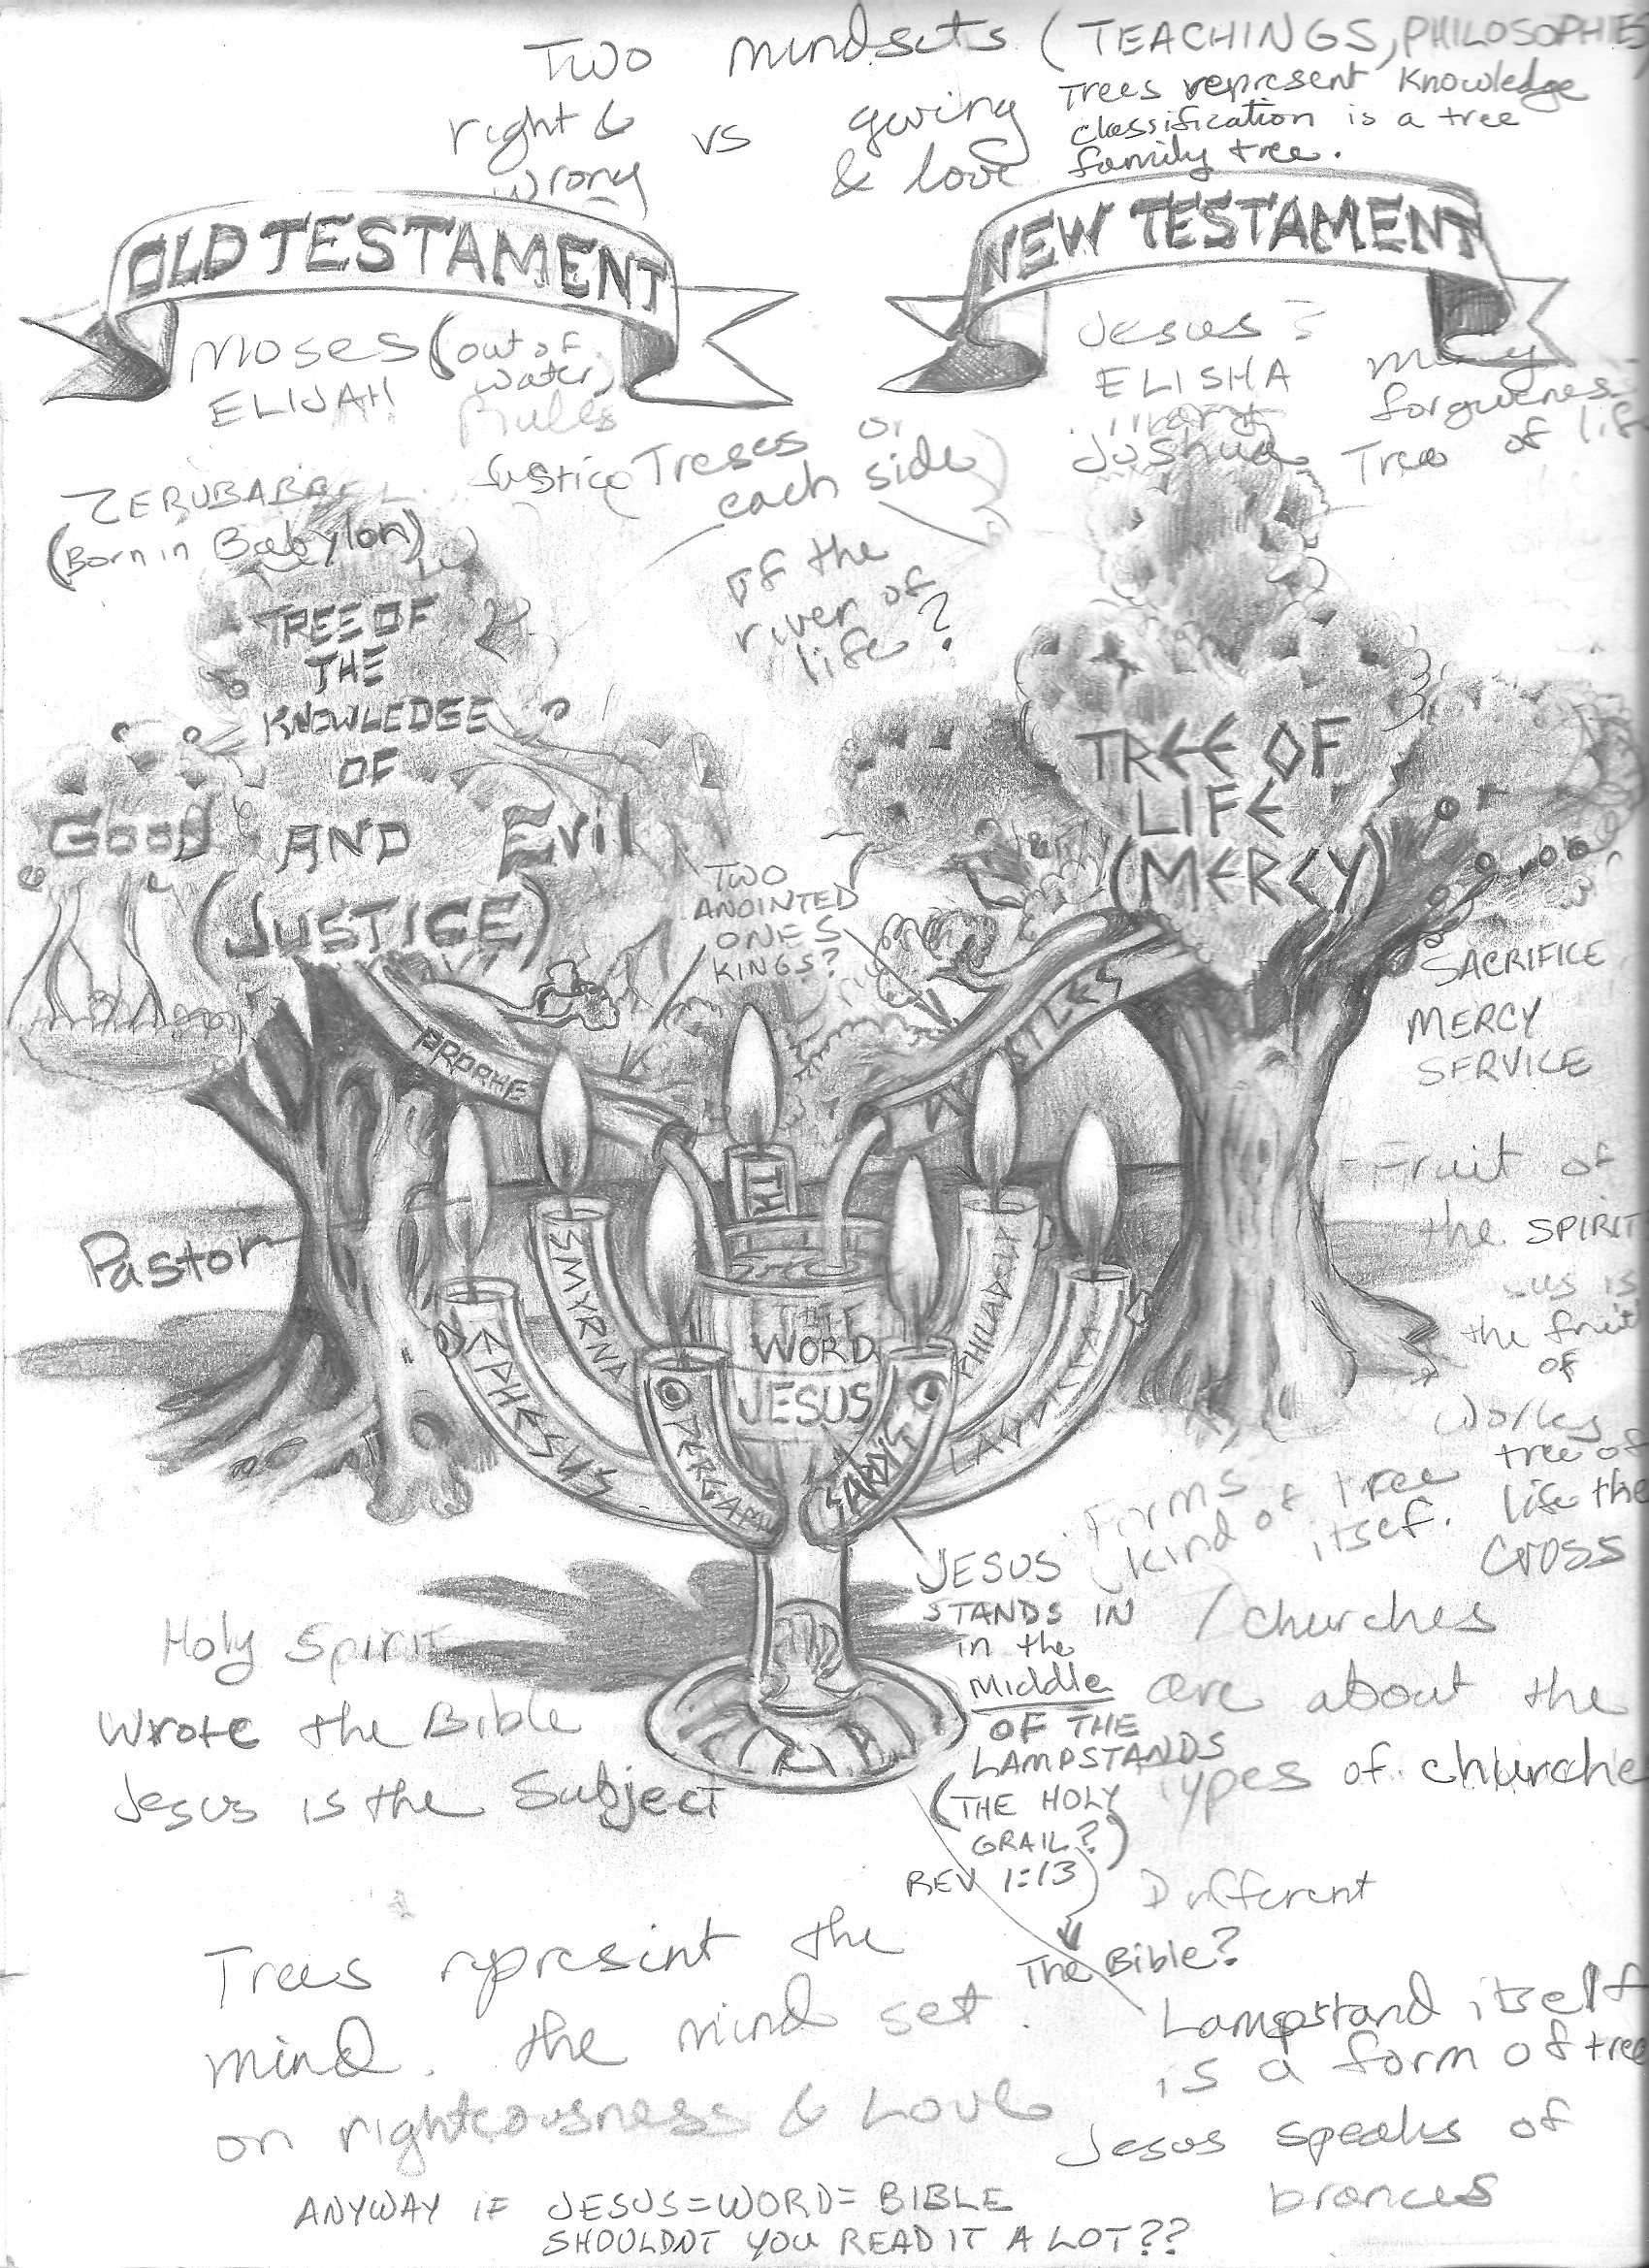 Two mindsets (TEACHINGS, PHILOSOPHIES
right &
wrong
vs
giving
& love
Trees represent Knowledge
classification is a tree
family tree.
OLD TESTAMENT
NEW TESTAMENT
Moses (out of
water)
ELIJAH
Rules
Justice
ZERUBABBEL
(Born in Babylon)
Treses on
each side
of the
river of
life?
Jesus =
ELISHA
Joshua
Mercy
forgiveness
Tree of life
TREE OF
THE
KNOWLEDGE
OF
GOOD AND Evil
(JUSTICE)
TREE OF
LIFE
(MERCY)
TWO
ANOINTED
ONES
KINGS?
PROPHE
STLES
SACRIFICE
MERCY
SERVICE
Fruit of
the SPIRIT
sus is
the fruit
of
Works
tree of
life the
cross
Pastor
EPHESUS
SMYRNA
PERGAM
TH
THE
WORD
JESUS
SARDIS
PHILADELP
Forms
kind of tree
itsef.
JESUS
STANDS IN
in the
Middle
OF THE
LAMPSTANDS
(THE HOLY
GRAIL?)
REV 1:13
The Bible?
7 churches
are about the
Different
Types of churche
Holy Spirit
Wrote the Bible
Jesus is the Subject
Trees rpresint the
mind. the mind set
on righteousness & Love
Lampstand itself
is a form of tree
Jesus speaks of
brances
ANYWAY IF JESUS=WORD=BIBLE
SHOULDNT YOU READ IT A LOT??